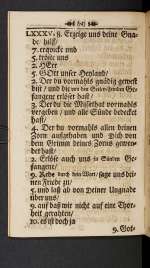 LXXXV. 8. Erzeige uns deine Gna-
de hilff
7. erquicke und
5. tröste uns
2. HErr
5. GOtt unser Heyland/
2. Der du vormahls gnädig gewest
bist / und die von den Ge-
fangene erlöset hast
3. Der du die Missethat vormahls
vergeben / und alle Sünde bedecket
hast/
4. Der du vormahls allen deinen
Zorn aufgehaben und Dich von
dem Grimm deines Zorns gewen-
det hast/
2. Erlöse auch uns in Sünden Ge-
fangene/
9. Rede durch dein Wort/ sage uns dei-
nen Friede zu/
5. und laß ab von Deiner Ungnade
über uns/
9. auf daß wir nicht auf eine Thor-
heit gerahten/
10. es ist doch ja
9. Got-